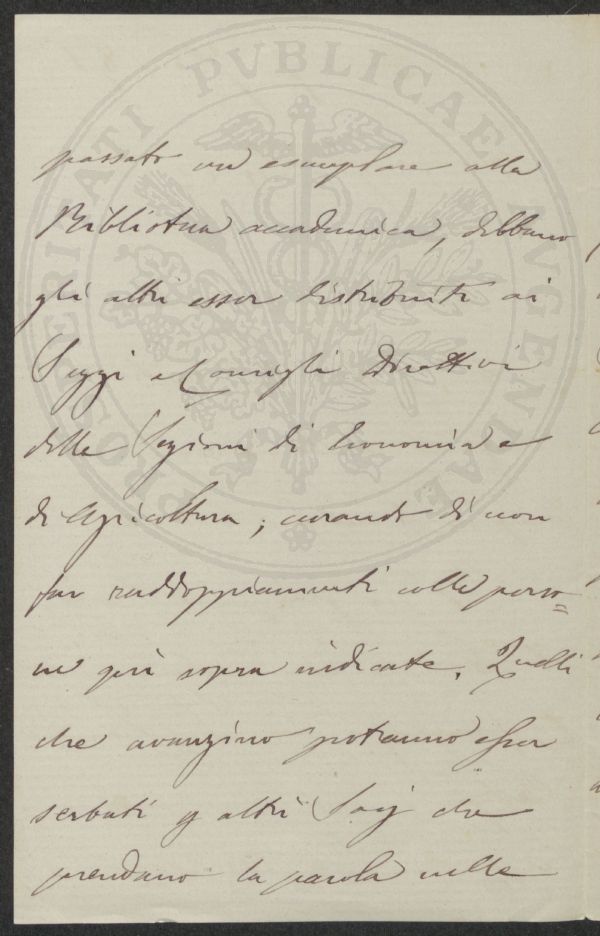 PROSPERITATI PVBLICAE AVGENDAE
passato un esemplare alla
Biblioteca accademica, debbano
gli altri esser distribuiti ai
Seggi e Consigli Direttivi
delle Sezioni di Economia e
di Agricoltura; curando di non
far raddoppiamenti colle perso=
ne più sopra indicate. Quelli
che avanzino potranno esser
serbati p altri Socj che
prendano la parola nelle